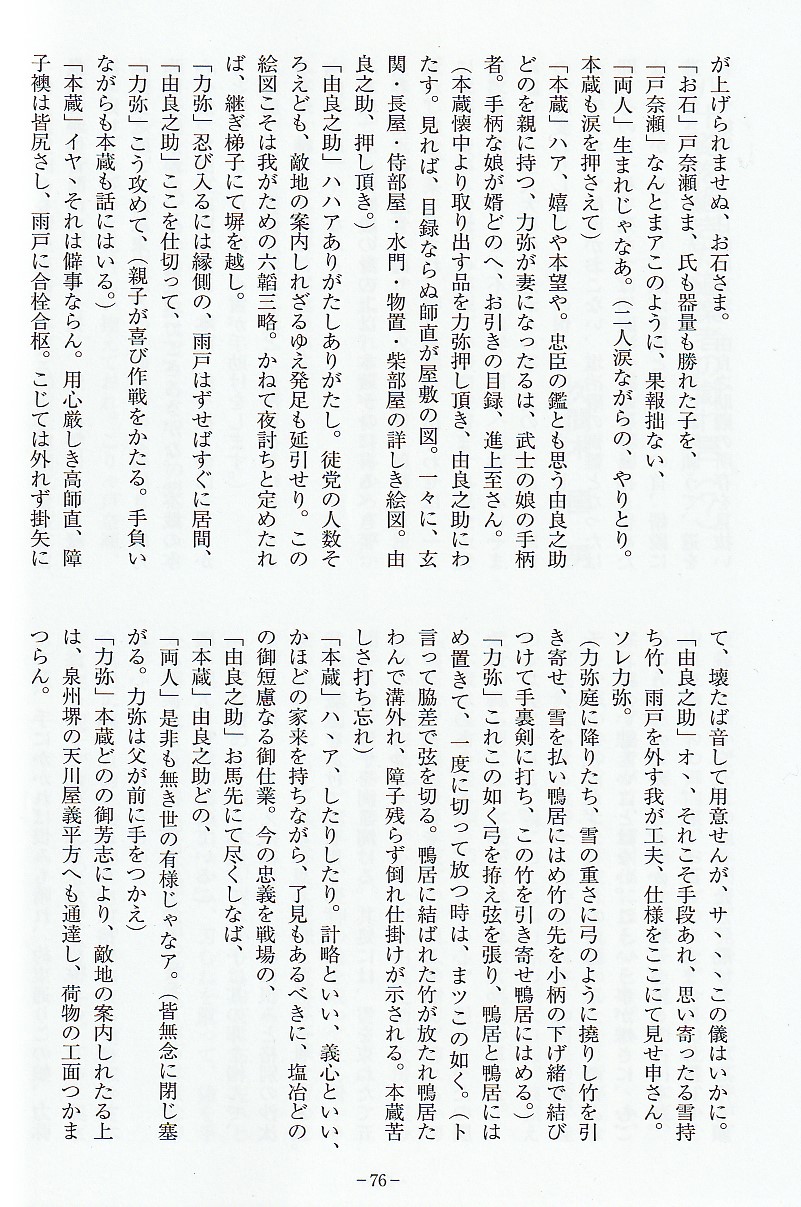 が上げられませぬ、お石さま。
「お石」戸奈瀬さま、氏も器量も勝れた子を、
「戸奈瀬」なんとまアこのように、果報拙ない、
「両人」生まれじゃなあ。（二人涙ながらの、やりとり。
本蔵も涙を押さえて）
「本蔵」ハア、嬉しや本望や。忠臣の鑑とも思う由良之助
どのを親に持つ、力弥が妻になったるは、武士の娘の手柄
者。手柄な娘が婿どのへ、お引きの目録、進上至さん。
（本蔵懐中より取り出す品を力弥押し頂き、由良之助にわ
たす。見れば、目録ならぬ師直が屋敷の図。一々に、玄
関・長屋・侍部屋・水門・物置・柴部屋の詳しき絵図。由
良之助、押し頂き。）
「由良之助」ハハアありがたしありがたし。徒党の人数そ
ろえども、敵地の案内しれざるゆえ発足も延引せり。この
絵図こそは我がための六韜三略。かねて夜討ちと定めたれ
ば、継ぎ梯子にて塀を越し。
「力弥」忍び入るには縁側の、雨戸はずせばすぐに居間、
「由良之助」ここを仕切って、
「力弥」こう攻めて、（親子が喜び作戦をかたる。手負い
ながらも本蔵も話にはいる。）
「本蔵」イヤヽそれは僻事ならん。用心厳しき高師直、障
子襖は皆尻さし、雨戸に合栓合枢。こじては外れず掛矢に
て、壊たば音して用意せんが、サヽヽヽこの儀はいかに。
「由良之助」オヽ、それこそ手段あれ、思い寄ったる雪持
ち竹、雨戸を外す我が工夫、仕様をここにて見せ申さん。
ソレ力弥。
（力弥庭に降りたち、雪の重さに弓のように撓りし竹を引
き寄せ、雪を払い鴨居にはめ竹の先を小柄の下げ緒で結び
つけて手裏剣に打ち、この竹を引き寄せ鴨居にはめる。）
「力弥」これこの如く弓を拵え弦を張り、鴨居と鴨居には
め置きて、一度に切って放つ時は、まツこの如く。（ト
言って脇差で弦を切る。鴨居に結ばれた竹が放たれ鴨居た
わんで溝外れ、障子残らず倒れ仕掛けが示される。本蔵苦
しさ打ち忘れ）
「本蔵」ハヽア、したりしたり。計略といい、義心といい、
かほどの家来を持ちながら、了見もあるべきに、塩冶どの
の御短慮なる御仕業。今の忠義を戦場の、
「由良之助」お馬先にて尽くしなば、
「本蔵」由良之助どの、
「両人」是非も無き世の有様じゃなア。（皆無念に閉じ塞
がる。力弥は父が前に手をつかえ）
「力弥」本蔵どのの御芳志により、敵地の案内しれたる上
は、泉州堺の天川屋義平方へも通達し、荷物の工面つかま
つらん。
－76－